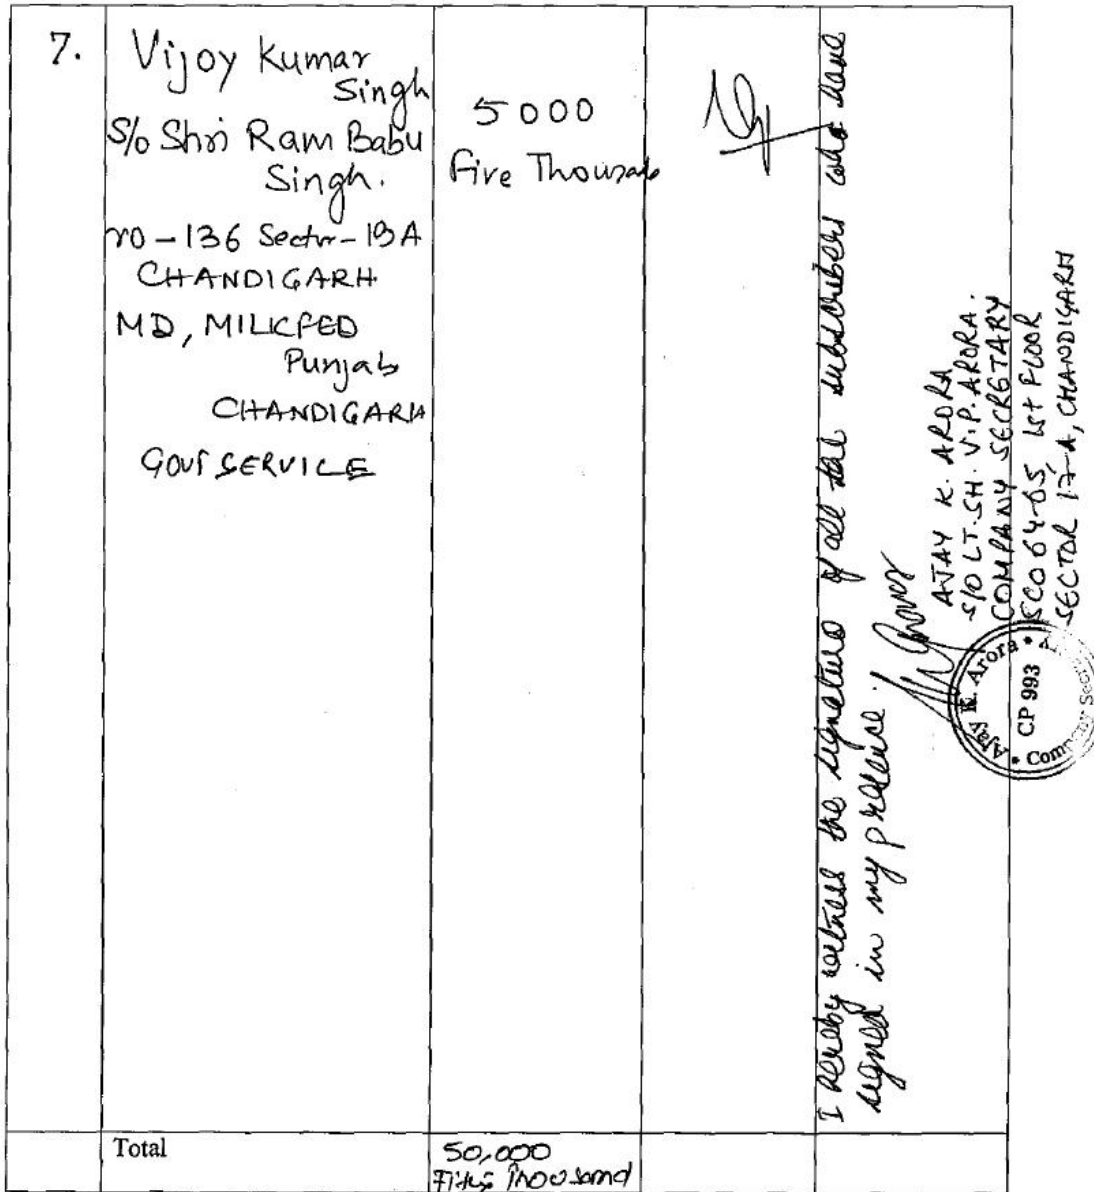 7.
Vijoy Kumar
Singh
S/o Shri Ram Babu
Singh.
5000
Five Thousand
ro-136 Sector-19A
CHANDIGARH
MD, MILKFED
Punjab
CHANDIGARH
GOVT SERVICE
I hereby witness the signature of all the subscribers who have
signed in my presence.
AJAY K. ARORA
S/O LT. SH. V.P. ARORA.
COMPANY SECRETARY
SCO 64-65, 1st FLOOR
SECTOR 17-A, CHANDIGARH
Ajay K. Arora
CP 993
Total
50,000
Fifty Thousand